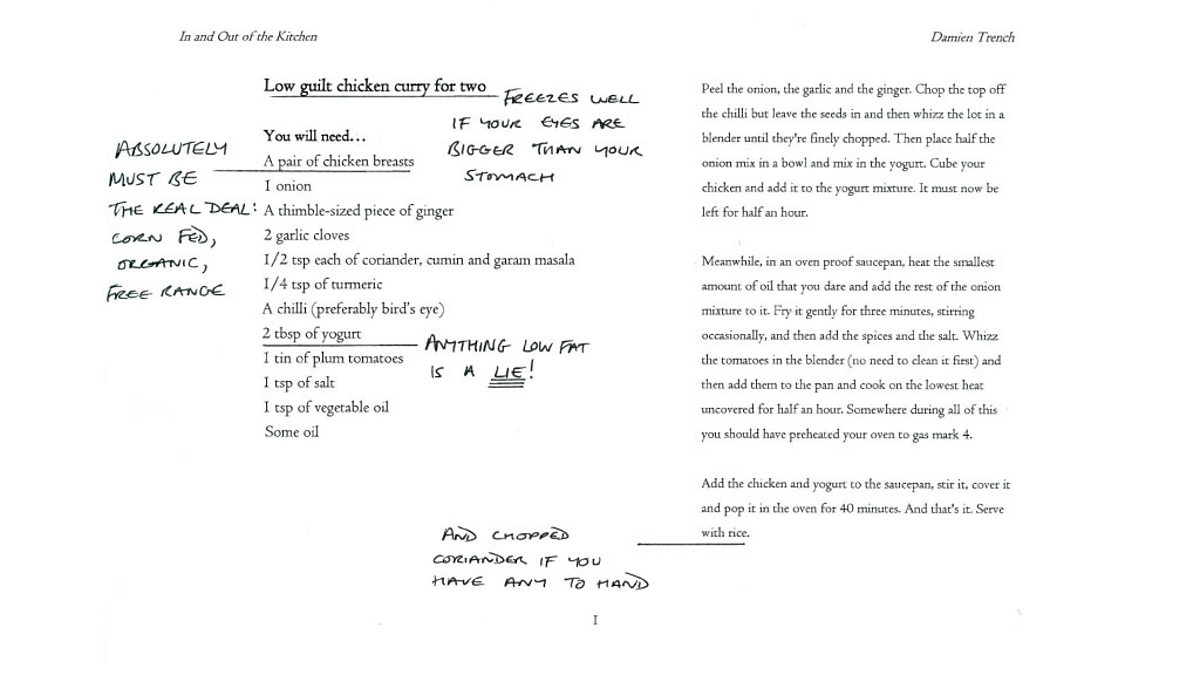 In and Out of the Kitchen
Damien Trench
Low guilt chicken curry for two
FREEZES WELL
IF YOUR EYES ARE
BIGGER THAN YOUR
STOMACH
You will need...
ABSOLUTELY
MUST BE
THE REAL DEAL:
CORN FED,
ORGANIC,
FREE RANGE
A pair of chicken breasts
1 onion
A thimble-sized piece of ginger
2 garlic cloves
1/2 tsp each of coriander, cumin and garam masala
1/4 tsp of turmeric
A chilli (preferably bird's eye)
2 tbsp of yogurt
ANYTHING LOW FAT
IS A LIE!
1 tin of plum tomatoes
1 tsp of salt
1 tsp of vegetable oil
Some oil
Peel the onion, the garlic and the ginger. Chop the top off
the chilli but leave the seeds in and then whizz the lot in a
blender until they're finely chopped. Then place half the
onion mix in a bowl and mix in the yogurt. Cube your
chicken and add it to the yogurt mixture. It must now be
left for half an hour.
Meanwhile, in an oven proof saucepan, heat the smallest
amount of oil that you dare and add the rest of the onion
mixture to it. Fry it gently for three minutes, stirring
occasionally, and then add the spices and the salt. Whizz
the tomatoes in the blender (no need to clean it first) and
then add them to the pan and cook on the lowest heat
uncovered for half an hour. Somewhere during all of this
you should have preheated your oven to gas mark 4.
Add the chicken and yogurt to the saucepan, stir it, cover it
and pop it in the oven for 40 minutes. And that's it. Serve
with rice.
AND CHOPPED
CORIANDER IF YOU
HAVE ANY TO HAND
1